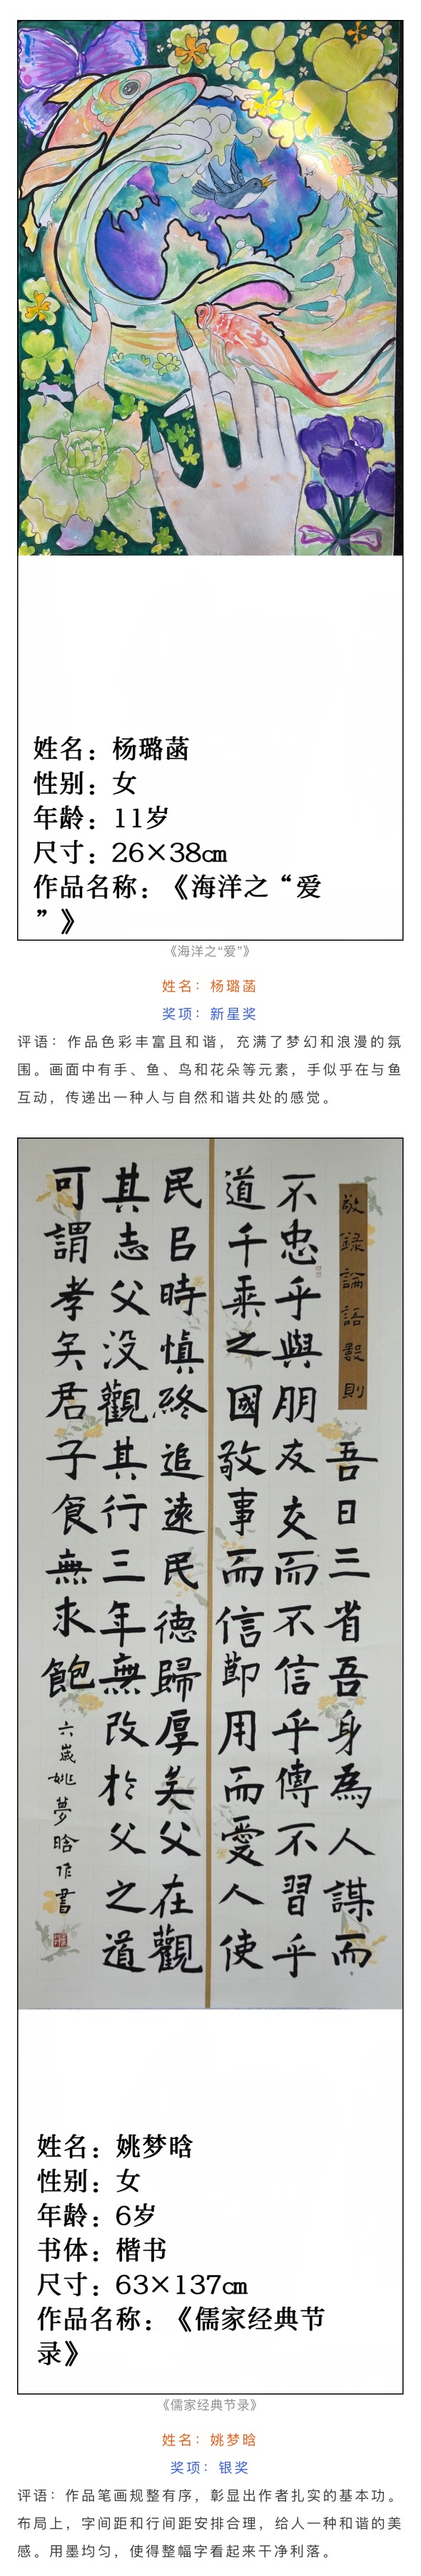 姓名：杨璐菡
性别：女
年龄：11岁
尺寸：26×38cm
作品名称：《海洋之“爱
”》
《海洋之“爱”》
姓名：杨璐菡
奖项：新星奖
评语：作品色彩丰富且和谐，充满了梦幻和浪漫的氛
围。画面中有手、鱼、鸟和花朵等元素，手似乎在与鱼
互动，传递出一种人与自然和谐共处的感觉。
敬録論語數則
吾日三省吾身為人謀而
不忠乎與朋友交而不信乎傳不習乎
道千乘之國敬事而信節用而愛人使
民以時慎終追遠民德歸厚矣父在觀
其志父没觀其行三年無改於父之道
可謂孝矣君子食無求飽
六歲姚夢晗作書
姓名：姚梦晗
性别：女
年龄：6岁
书体：楷书
尺寸：63×137cm
作品名称：《儒家经典节
录》
《儒家经典节录》
姓名：姚梦晗
奖项：银奖
评语：作品笔画规整有序，彰显出作者扎实的基本功。
布局上，字间距和行间距安排合理，给人一种和谐的美
感。用墨均匀，使得整幅字看起来干净利落。